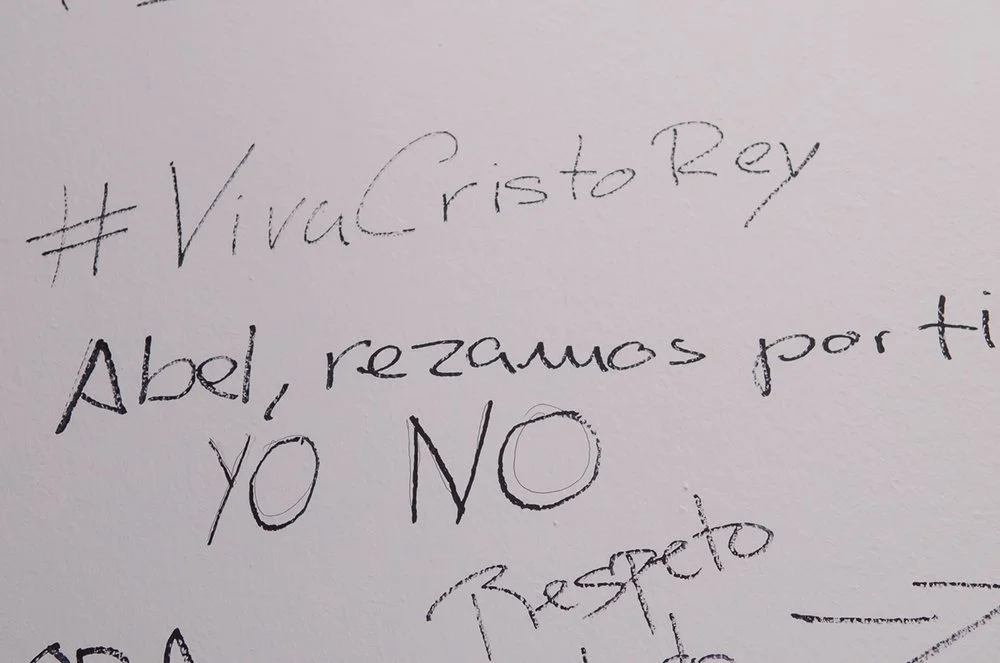 #VivaCristoRey
Abel, rezamos por ti
YO NO
Respeto